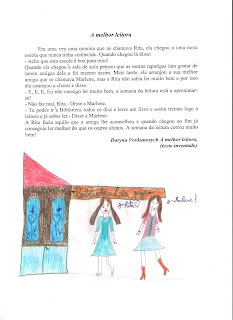 A melhor leitora
Era uma vez uma menina que se chamava Rita, ela chegou a uma nova
escola que nunca tinha conhecido. Quando chegou lá disse:
- Acho que esta escola é boa para mim!
Quando ela chegou à sala de aula pensou que as outras raparigas iam gostar de
serem amigas dela e foi mesmo assim. Mais tarde, ela arranjou a sua melhor
amiga que se chamava Marlene, mas a Rita não sabia ler muito bem e por isso
ela começou a chorar e disse:
- E, E, E, Eu não consigo ler muito bem, a semana da leitura está a aproximar-
se!
- Não faz mal, Rita.- Disse a Marlene.
- Tu podes ir à Biblioteca todos os dias e leres um livro e assim treinas logo a
leitura e já sabes ler.- Disse a Marlene.
A Rita fazia aquilo que a amiga lhe aconselhou e quando chegou ao fim já
conseguia ler melhor do que os outros alunos. A semana da leitura correu muito
bem!
Daryna Verkanovych A melhor leitora,
(texto inventado)